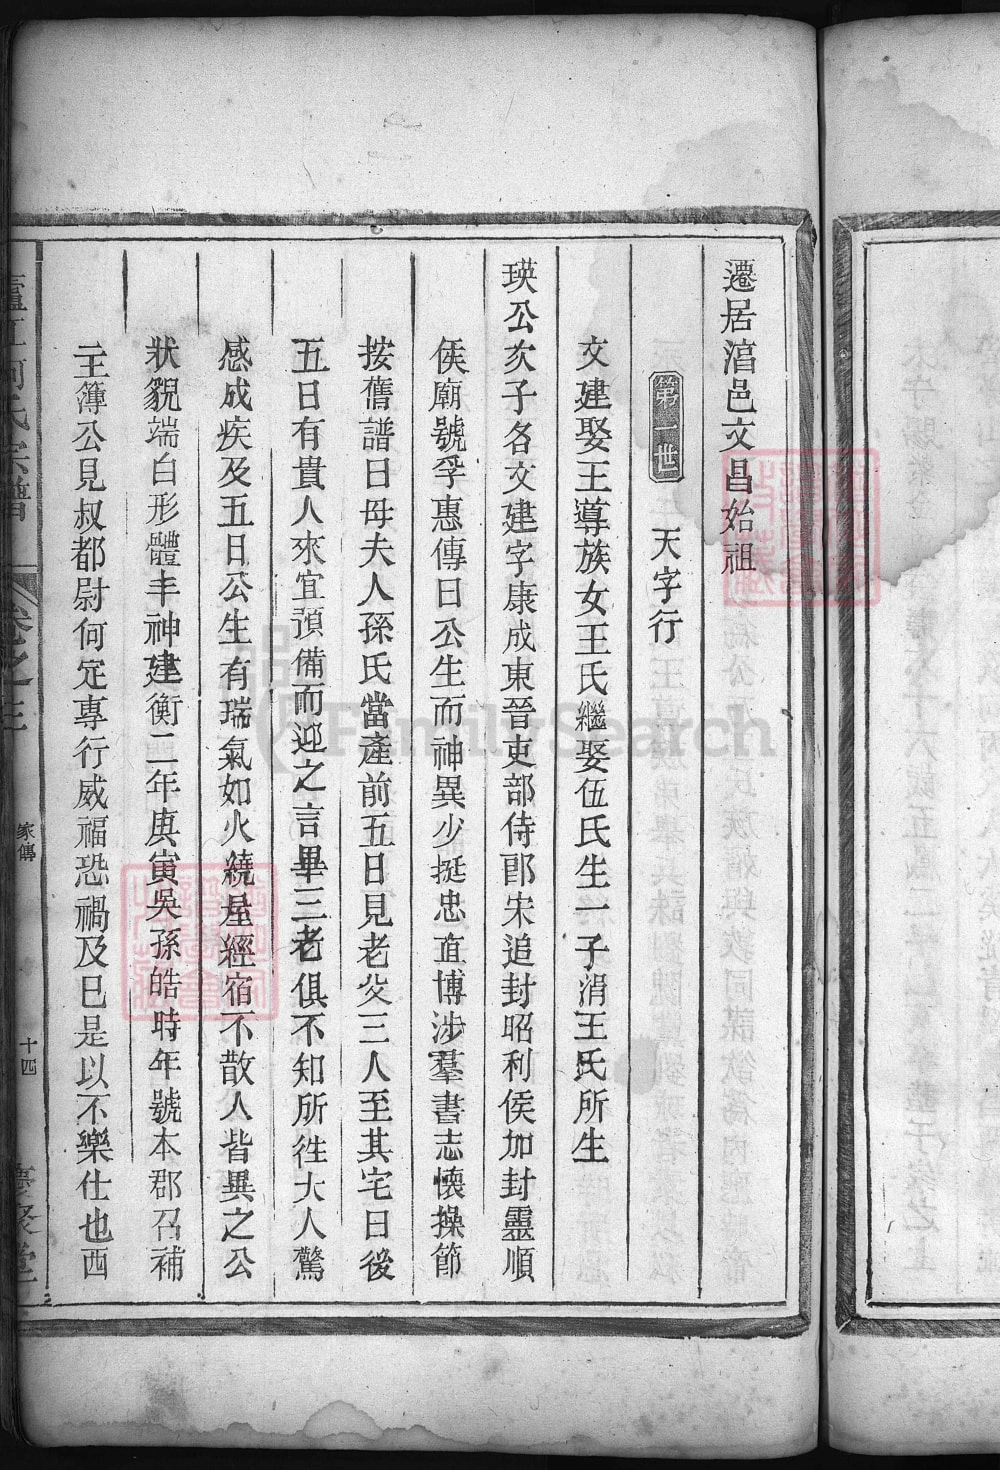 遷居涫邑文昌始祖
第一世 天字行
文建娶王導族女王氏繼娶伍氏生一子消王氏所生
瑛公次子名文建字康成東晉吏部侍郎宋追封昭利侯加封靈順
侯廟號孚惠傳曰公生而神異少挺忠直博涉羣書志懷操節
按舊譜曰母夫人孫氏當產前五日見老父三人至其宅曰後
五日有貴人來宜預備而迎之言畢三老俱不知所徃大人驚
感成疾及五日公生有瑞氣如火繞屋經宿不散人皆異之公
狀貎端白形體丰神建衡二年庚寅吳孫皓時年號本郡召補
主簿公見叔都尉何定專行威福恐禍及已是以不樂仕也西
廬江何氏宗譜 卷之三 家傳 十四 慶聚堂
FamilySearch